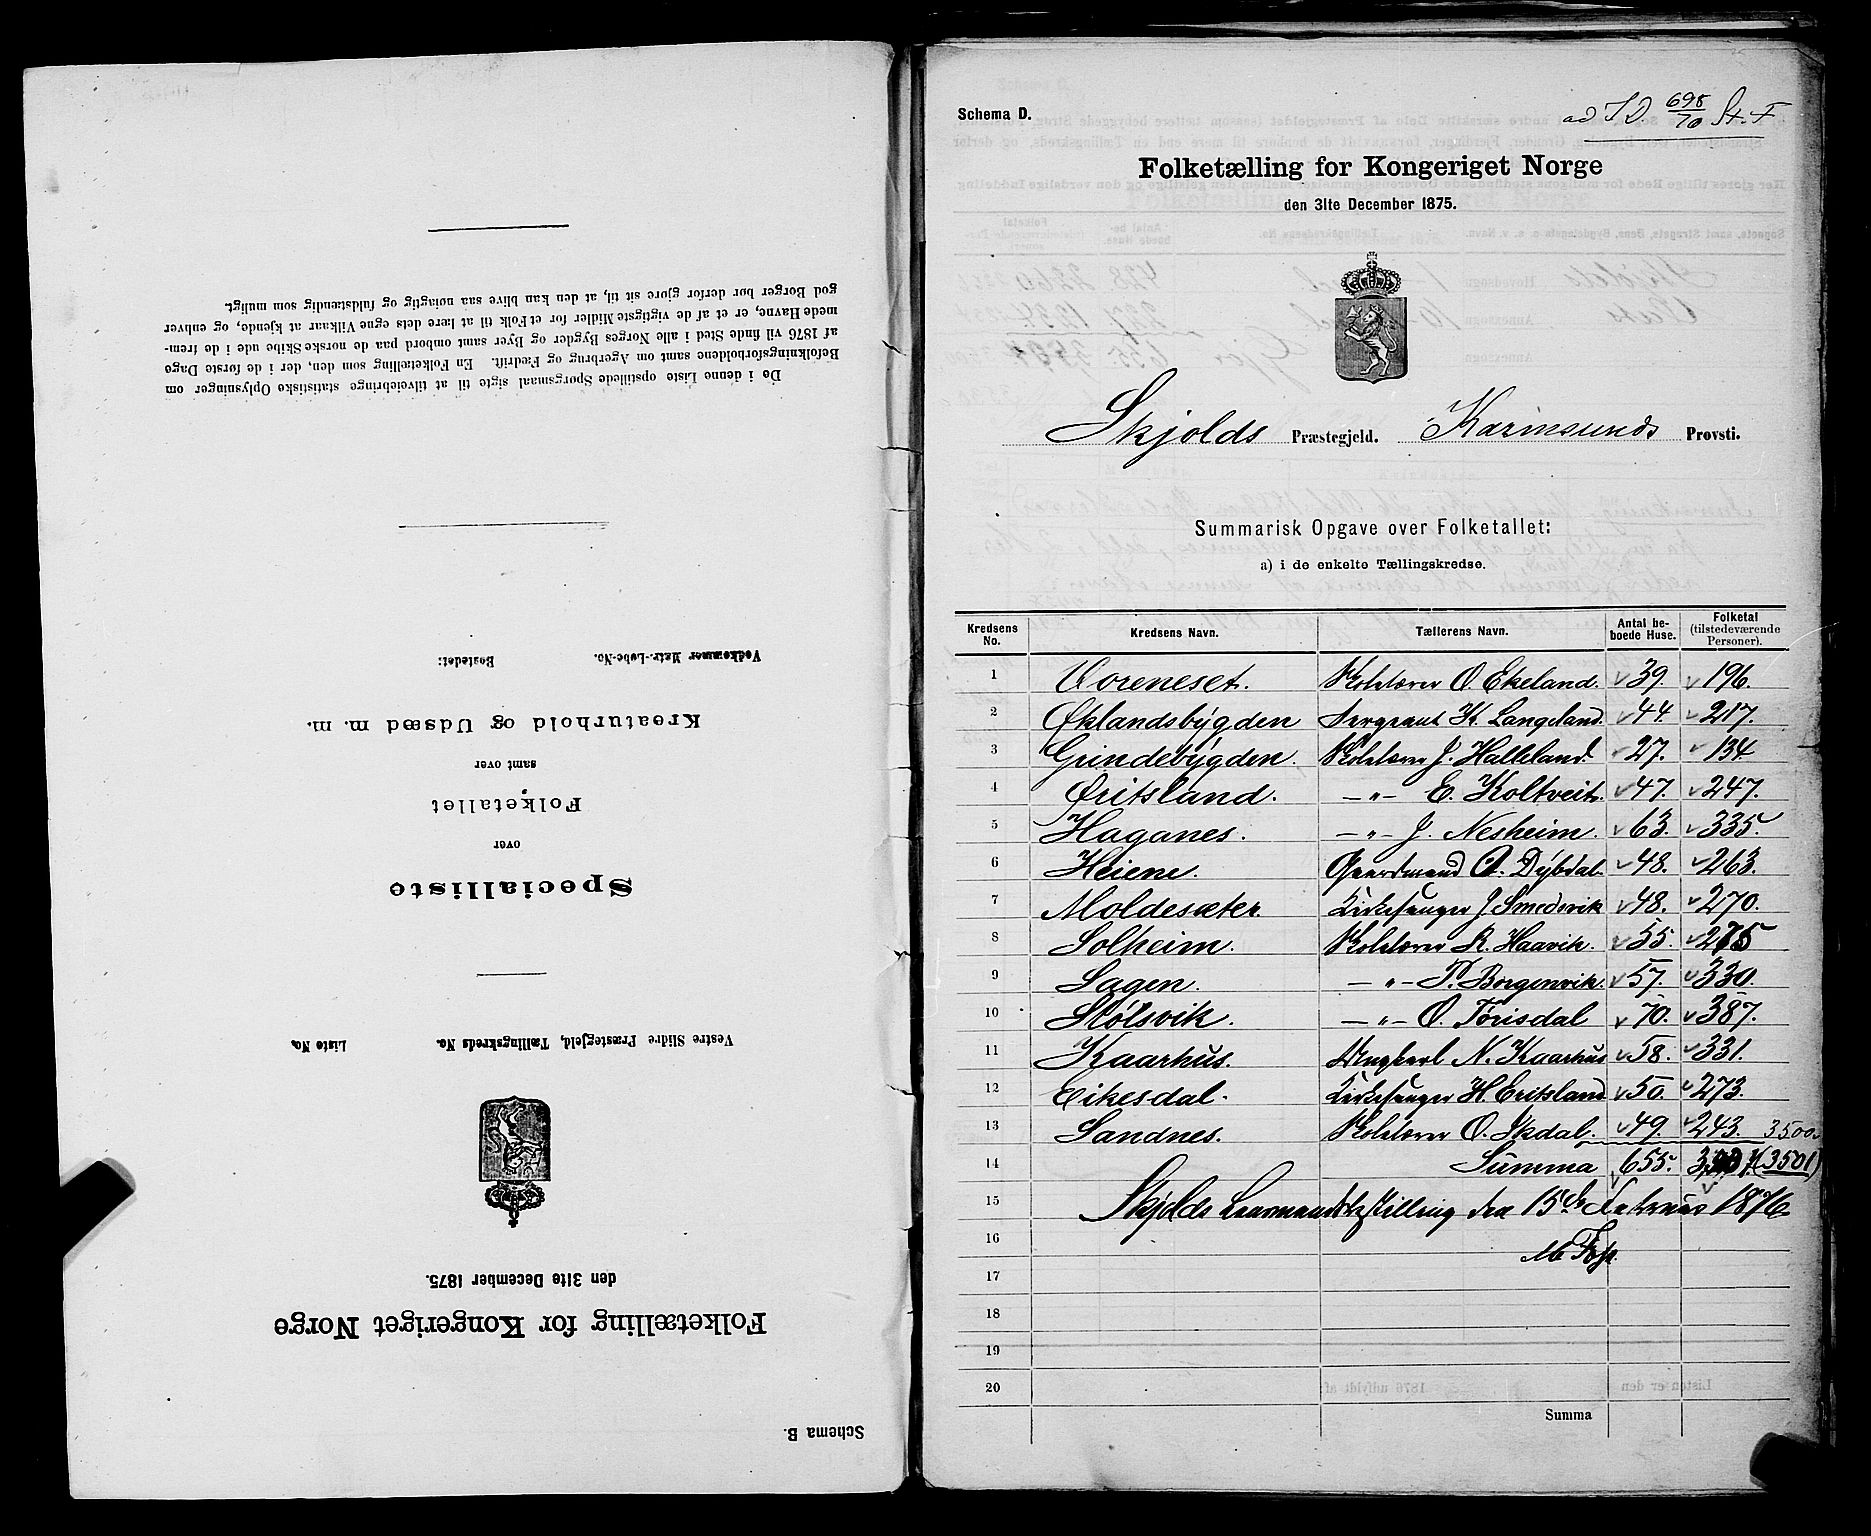 De i denne Liste opstillede Spørgsmaal sigte til at tilveiebringe statistiske Oplysninger om
Befolkningsforholdene samt om Agerbrug og Fædrift. En Folketælling som den, der i de første Dage
af 1876 vil finde Sted i alle Norges Bygder og Byer samt ombord paa de norske Skibe ude i de frem-
mede Havne, er et af de vigtigste Midler for et Folk til at lære dets egne Vilkaar at kjende, og enhver
god Borger bør derfor gjøre sit til, at den kan blive saa nøiagtig og fuldstændig som muligt.
Schema B.
Folketælling for Kongeriget Norge
den 31te December 1875.
Vestre Slidre Præstegjeld, Tællingskreds No. Liste No.
Specialliste
over
Folketallet
samt over
Kreaturhold og Udsæd m. m.
Vedkommer Matr.-Løbe-No. Bostedet:
Schema D.
ad 698/70 St. F
Folketælling for Kongeriget Norge
den 31te December 1875.
Skjolds Præstegjeld. Karmsunds Provsti.
Summarisk Opgave over Folketallet:
a) i de enkelte Tællingskredse.
Kredsens No. Kredsens Navn. Tællerens Navn. Antal be- boede Huse. Folketal (tilstedeværende Personer).
1 Voreneset. Kolstærer O. Ekeland. 39. 196.
2 Øklandsbygden Sergeant K. Langeland. 44. 217.
3 Grindebygden. J. Halleland. 27. 134.
4 Øritsland. —"— E. Koltveit. 47. 247.
5 Haganes. —"— J. Nesheim. 63. 335.
6 Heiene. Gaardmand O. Dybdal. 48. 263.
7 Moldesæter. Kirkesanger J. Smedsvik 48. 270.
8 Solheim. R. Haavik. 55. 275
9 Sagen. —"— T. Borgenvik. 57. 330.
10 Stølsvik. —"— O. Torisdal 70. 387.
11 Kaarhus. Ungkarl N. Kaarhus 58. 331.
12 Eikesdal. Kirkesanger H. Eritsland 50. 273.
13 Sandnes. O. Økdal. 49. 243. 3500.
14 Summa 655. (3501)
15 Skjolds Lensmandsbestilling den 15de Februar 1876.
16
17
18
19
20
Summa